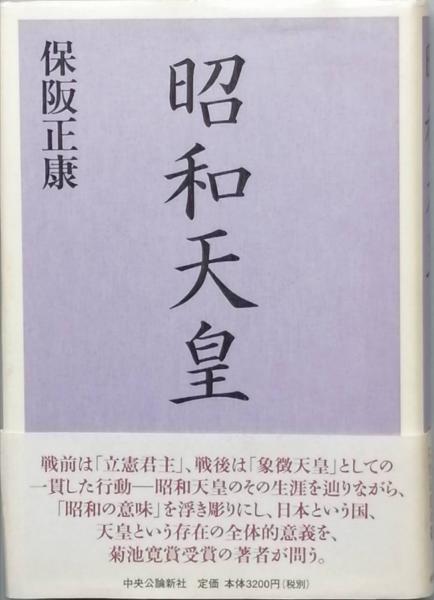 昭和天皇
保阪正康
戦前は「立憲君主」、戦後は「象徴天皇」としての
一貫した行動―昭和天皇のその生涯を辿りながら、
「昭和の意味」を浮き彫りにし、日本という国、
天皇という存在の全体的意義を、
菊池寛賞受賞の著者が問う。
中央公論新社 定価 本体3200円(税別)